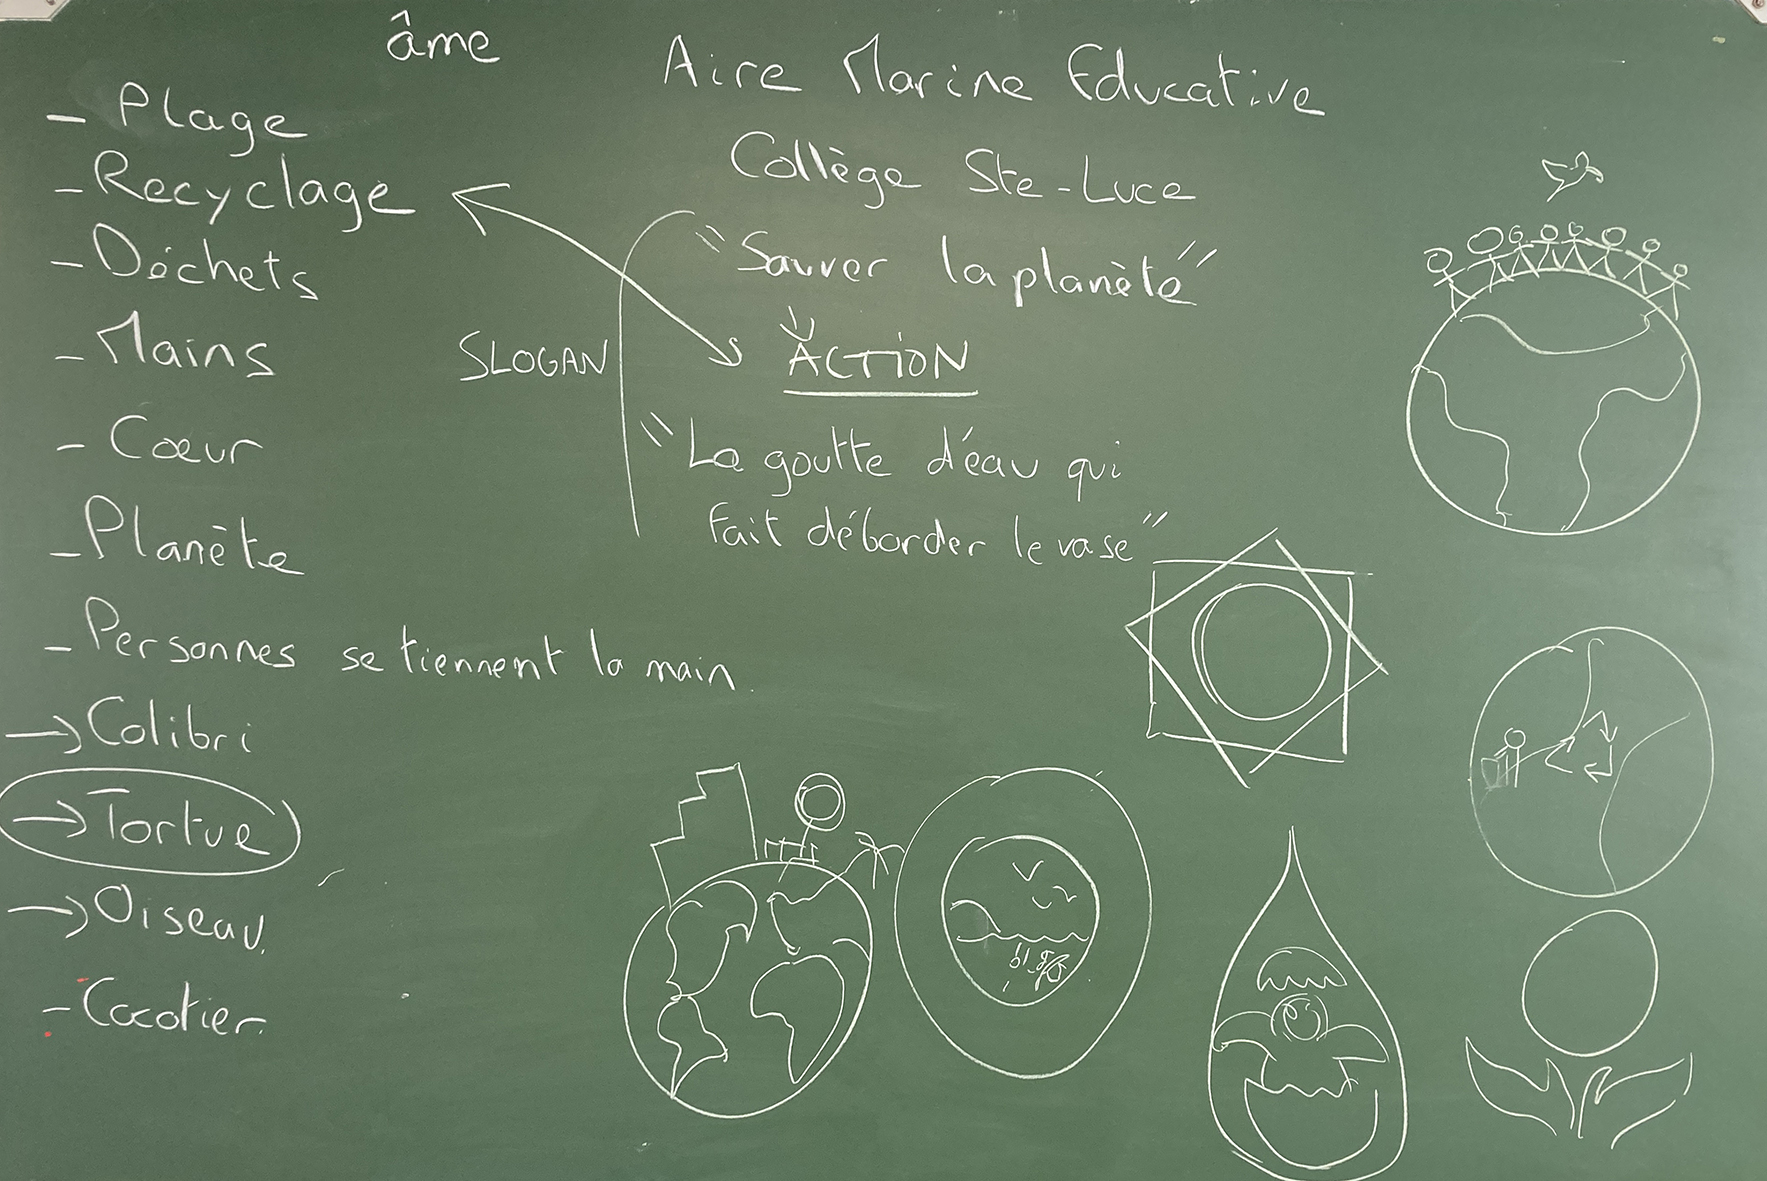 âme
Aire Marine Educative
Collège Ste-Luce
- Plage
- Recyclage
- Déchets
- Mains
- Cœur
- Planète
- Personnes se tiennent la main.
→ Colibri
→ Tortue
→ Oiseau.
- Cocotier.
SLOGAN
"Sauver la planète"
ACTION
"La goutte d'eau qui
fait déborder le vase"